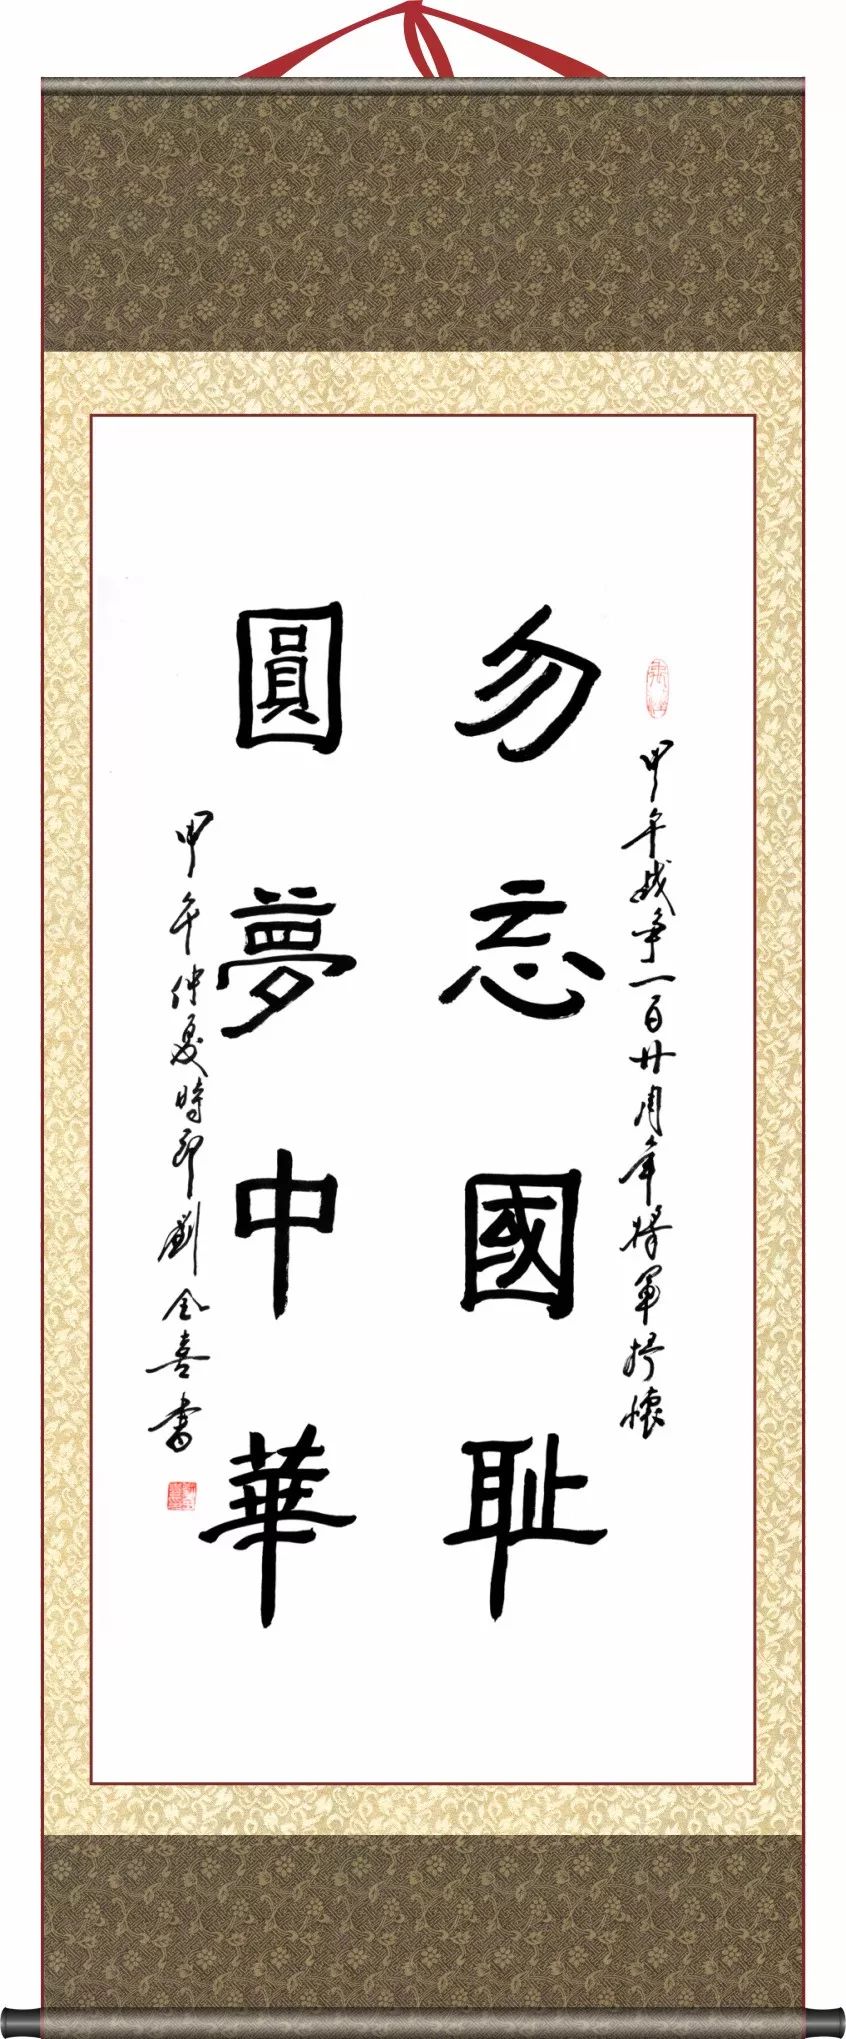 甲午战争一百廿周年将军抒怀
勿忘國耻
圓夢中華
甲午仲夏時節劉金喜書